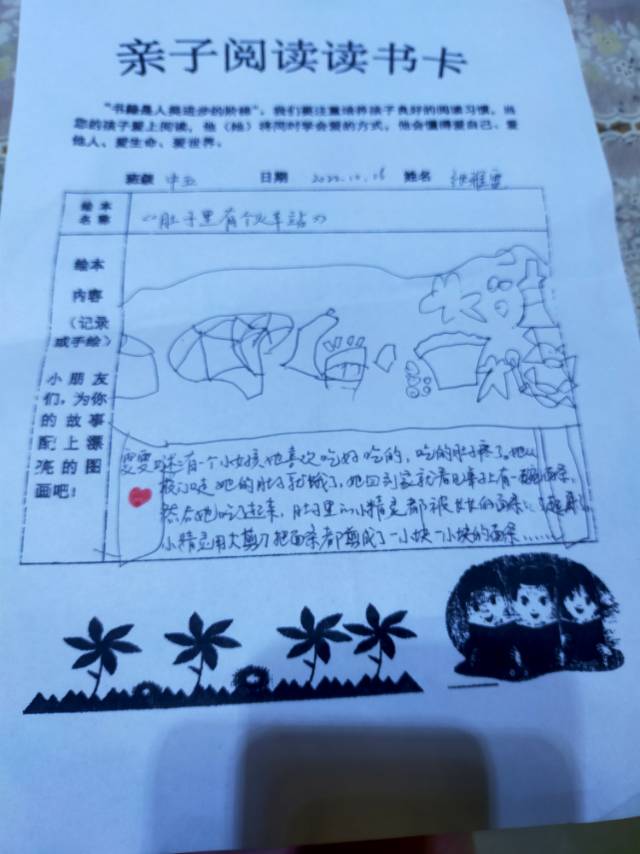 亲子阅读读书卡
“书籍是人类进步的阶梯”，我们要注重培养孩子良好的阅读习惯，当
您的孩子爱上阅读，他（她）将同时学会爱的方式，他会懂得爱自己、爱
他人、爱生命、爱世界。
班级 中五 日期 姓名
绘本名称 《肚子里有个火车站》
绘本
内容
（记录
或手绘）
小朋友
们，为你
的故事
配上漂
亮的图
画吧！
雯雯说:有一个小女孩她喜欢吃好吃的，吃的肚子疼了。
她的肚子就饿了，她回到家就看见桌子上有一碗面条，
然后她吃了起来，肚子里的小精灵都被长长的面条
小精灵用大剪刀把面条都剪成了一小块一小块的面条......